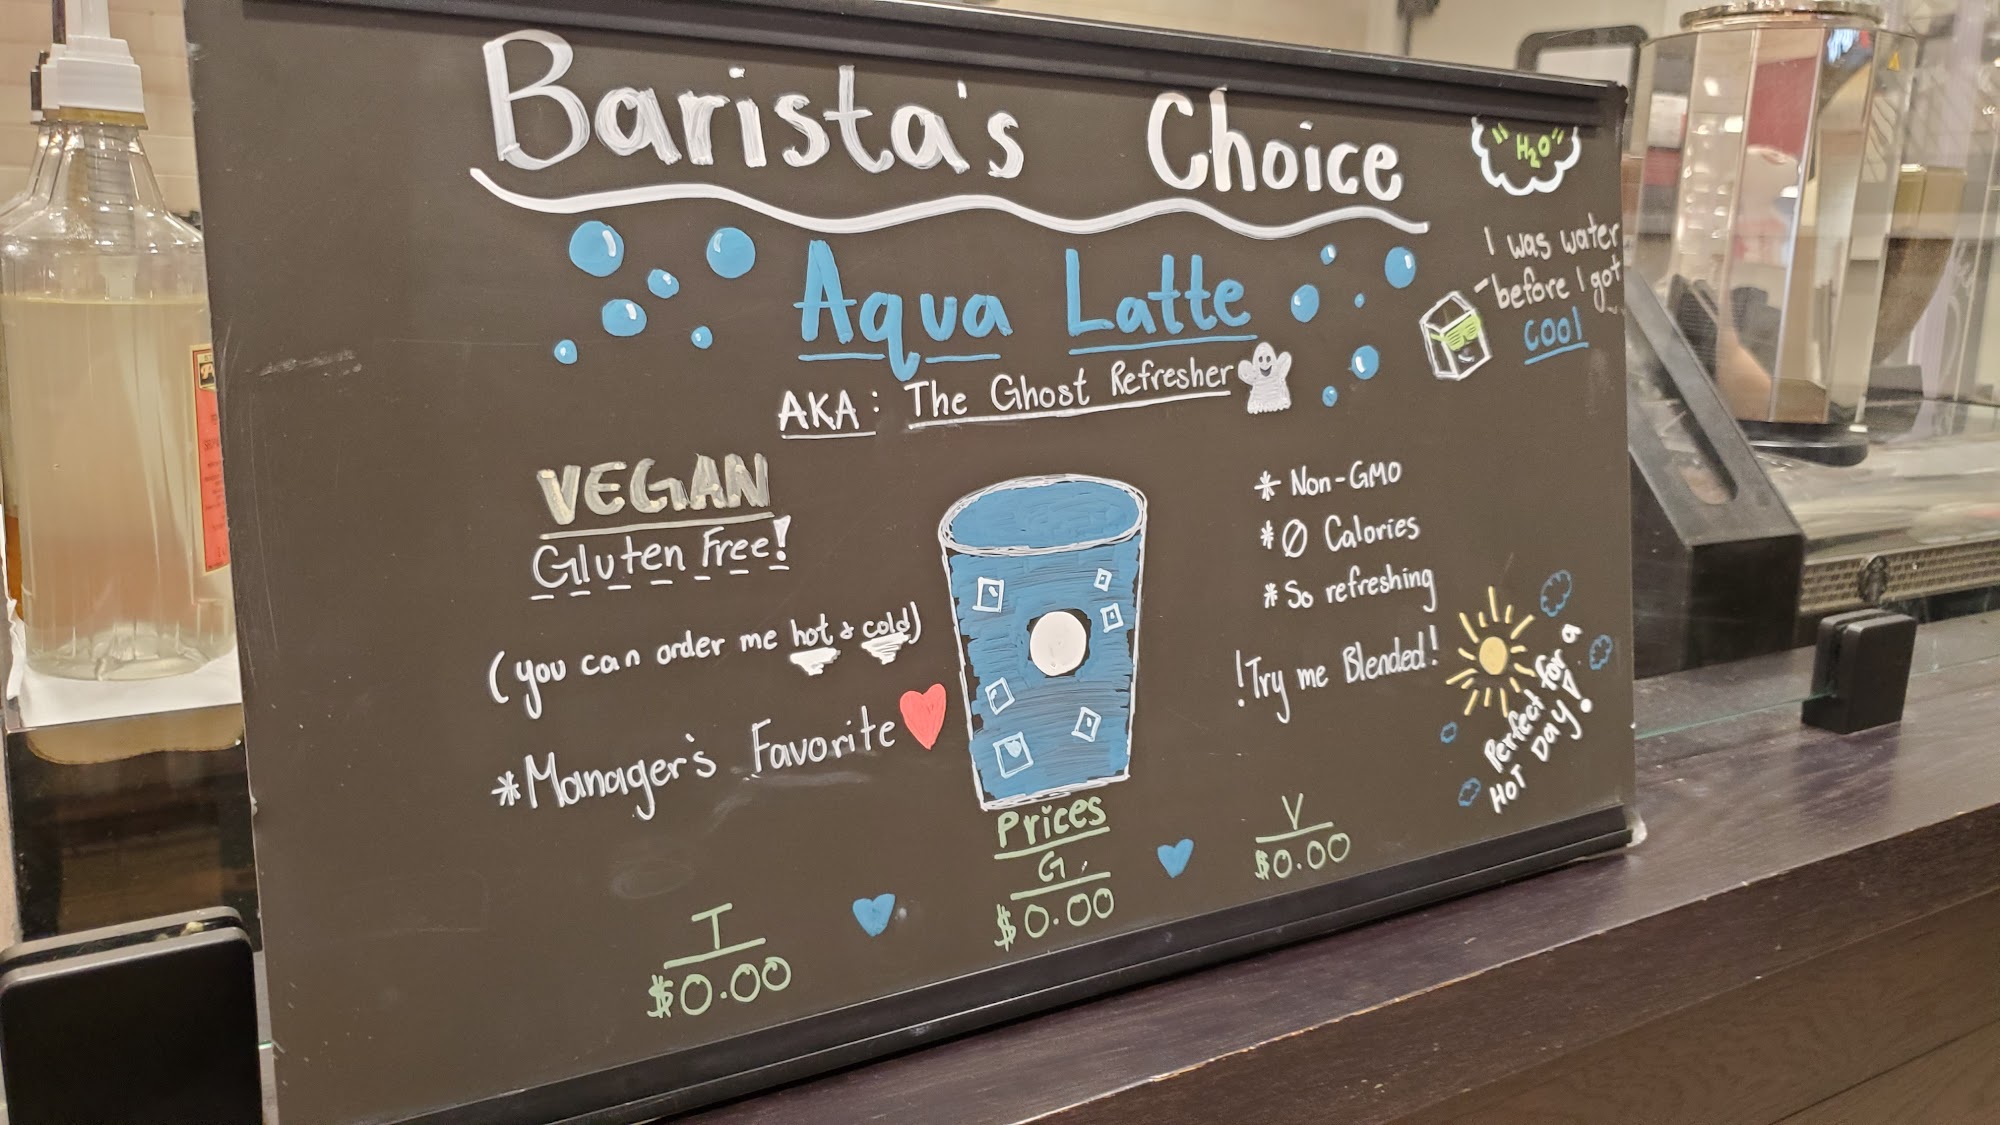 Barista's Choice
"H₂O"
I was water
before I got
COOL
Aqua Latte
AKA: The Ghost Refresher
VEGAN
Gluten Free!
(you can order me hot & cold)
*Manager's Favorite
* Non-GMO
* Ø Calories
* So refreshing
!Try me Blended!
Perfect for a
HOT DAY!
Prices
T
$0.00
G
$0.00
V
$0.00